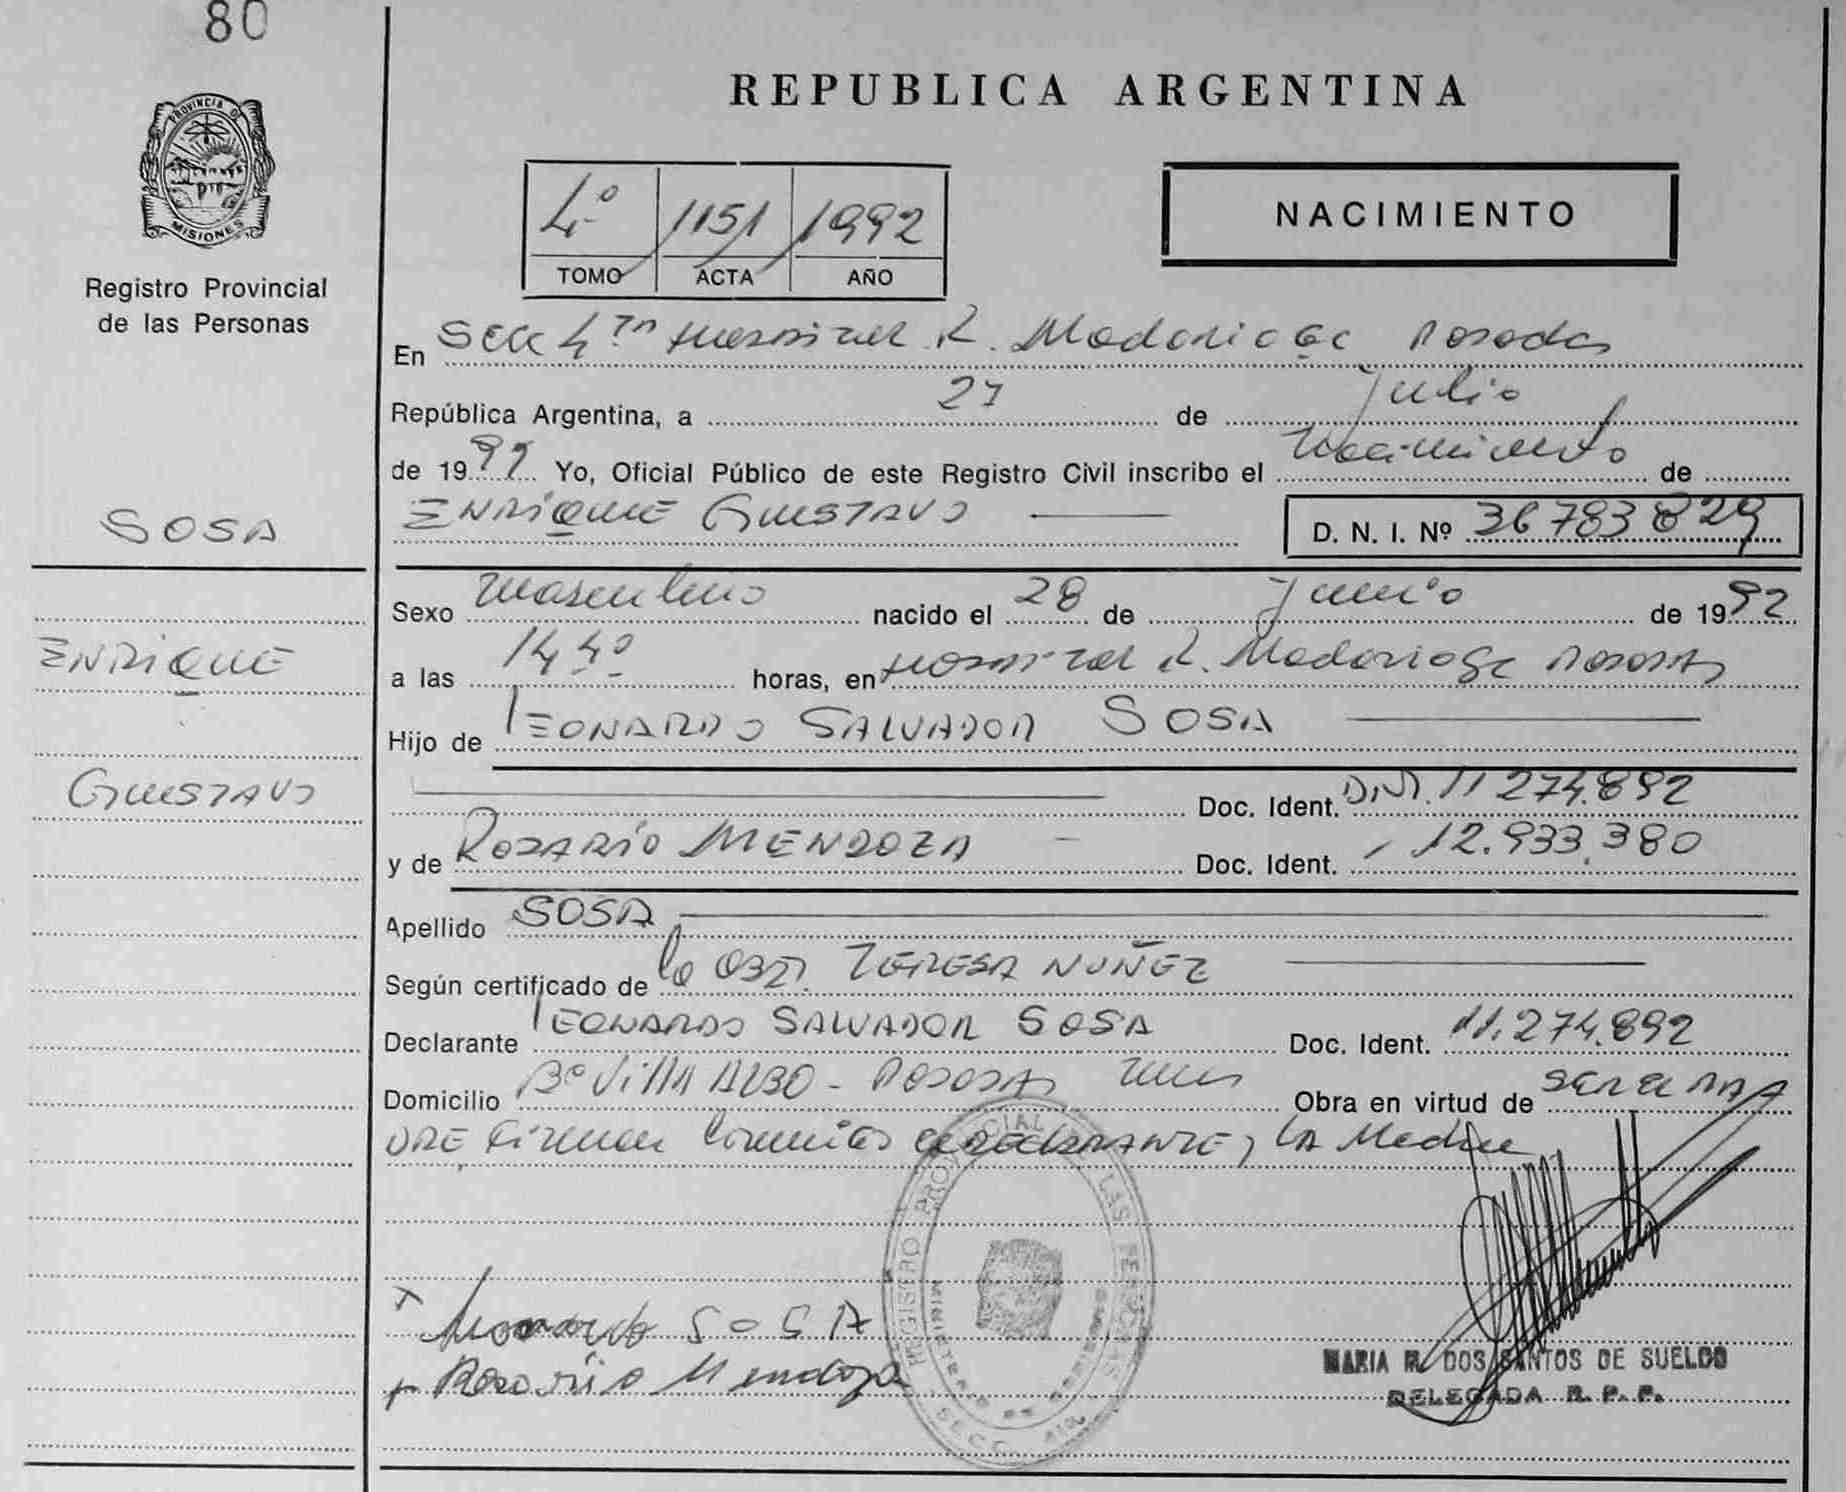 80
REPUBLICA ARGENTINA
PROVINCIA DE
MISIONES
Registro Provincial
de las Personas
4º 1151 1992
TOMO ACTA AÑO
NACIMIENTO
En Secc 4ta Hospital R. Madariaga Posadas
República Argentina, a 27 de Julio
de 1992 Yo, Oficial Público de este Registro Civil inscribo el Nacimiento de
SOSA
ENRIQUE GUSTAVO
D. N. I. Nº 36783829
Sexo Masculino nacido el 28 de Junio de 1992
ENRIQUE
a las 14 40 horas, en Hospital R. Madariaga Posadas
Hijo de LEONARDO SALVADOR SOSA
GUSTAVO
Doc. Ident. DNI. 11 274.892
y de ROSARIO MENDOZA Doc. Ident. 12.933.380
Apellido SOSA
Según certificado de la OBST. TERESA NUÑEZ
Declarante LEONARDO SALVADOR SOSA Doc. Ident. 11.274.892
Domicilio Bº Villa - POSADAS Obra en virtud de
Firman DECLARANTE, LA Madre
REGISTRO PROVINCIAL DE LAS PERSONAS
MINISTERIO DE GOBIERNO
SECC.
Leonardo SOSA
Rosario Mendoza
MARIA R. DOS SANTOS DE SUELDO
DELEGADA R. P. P.